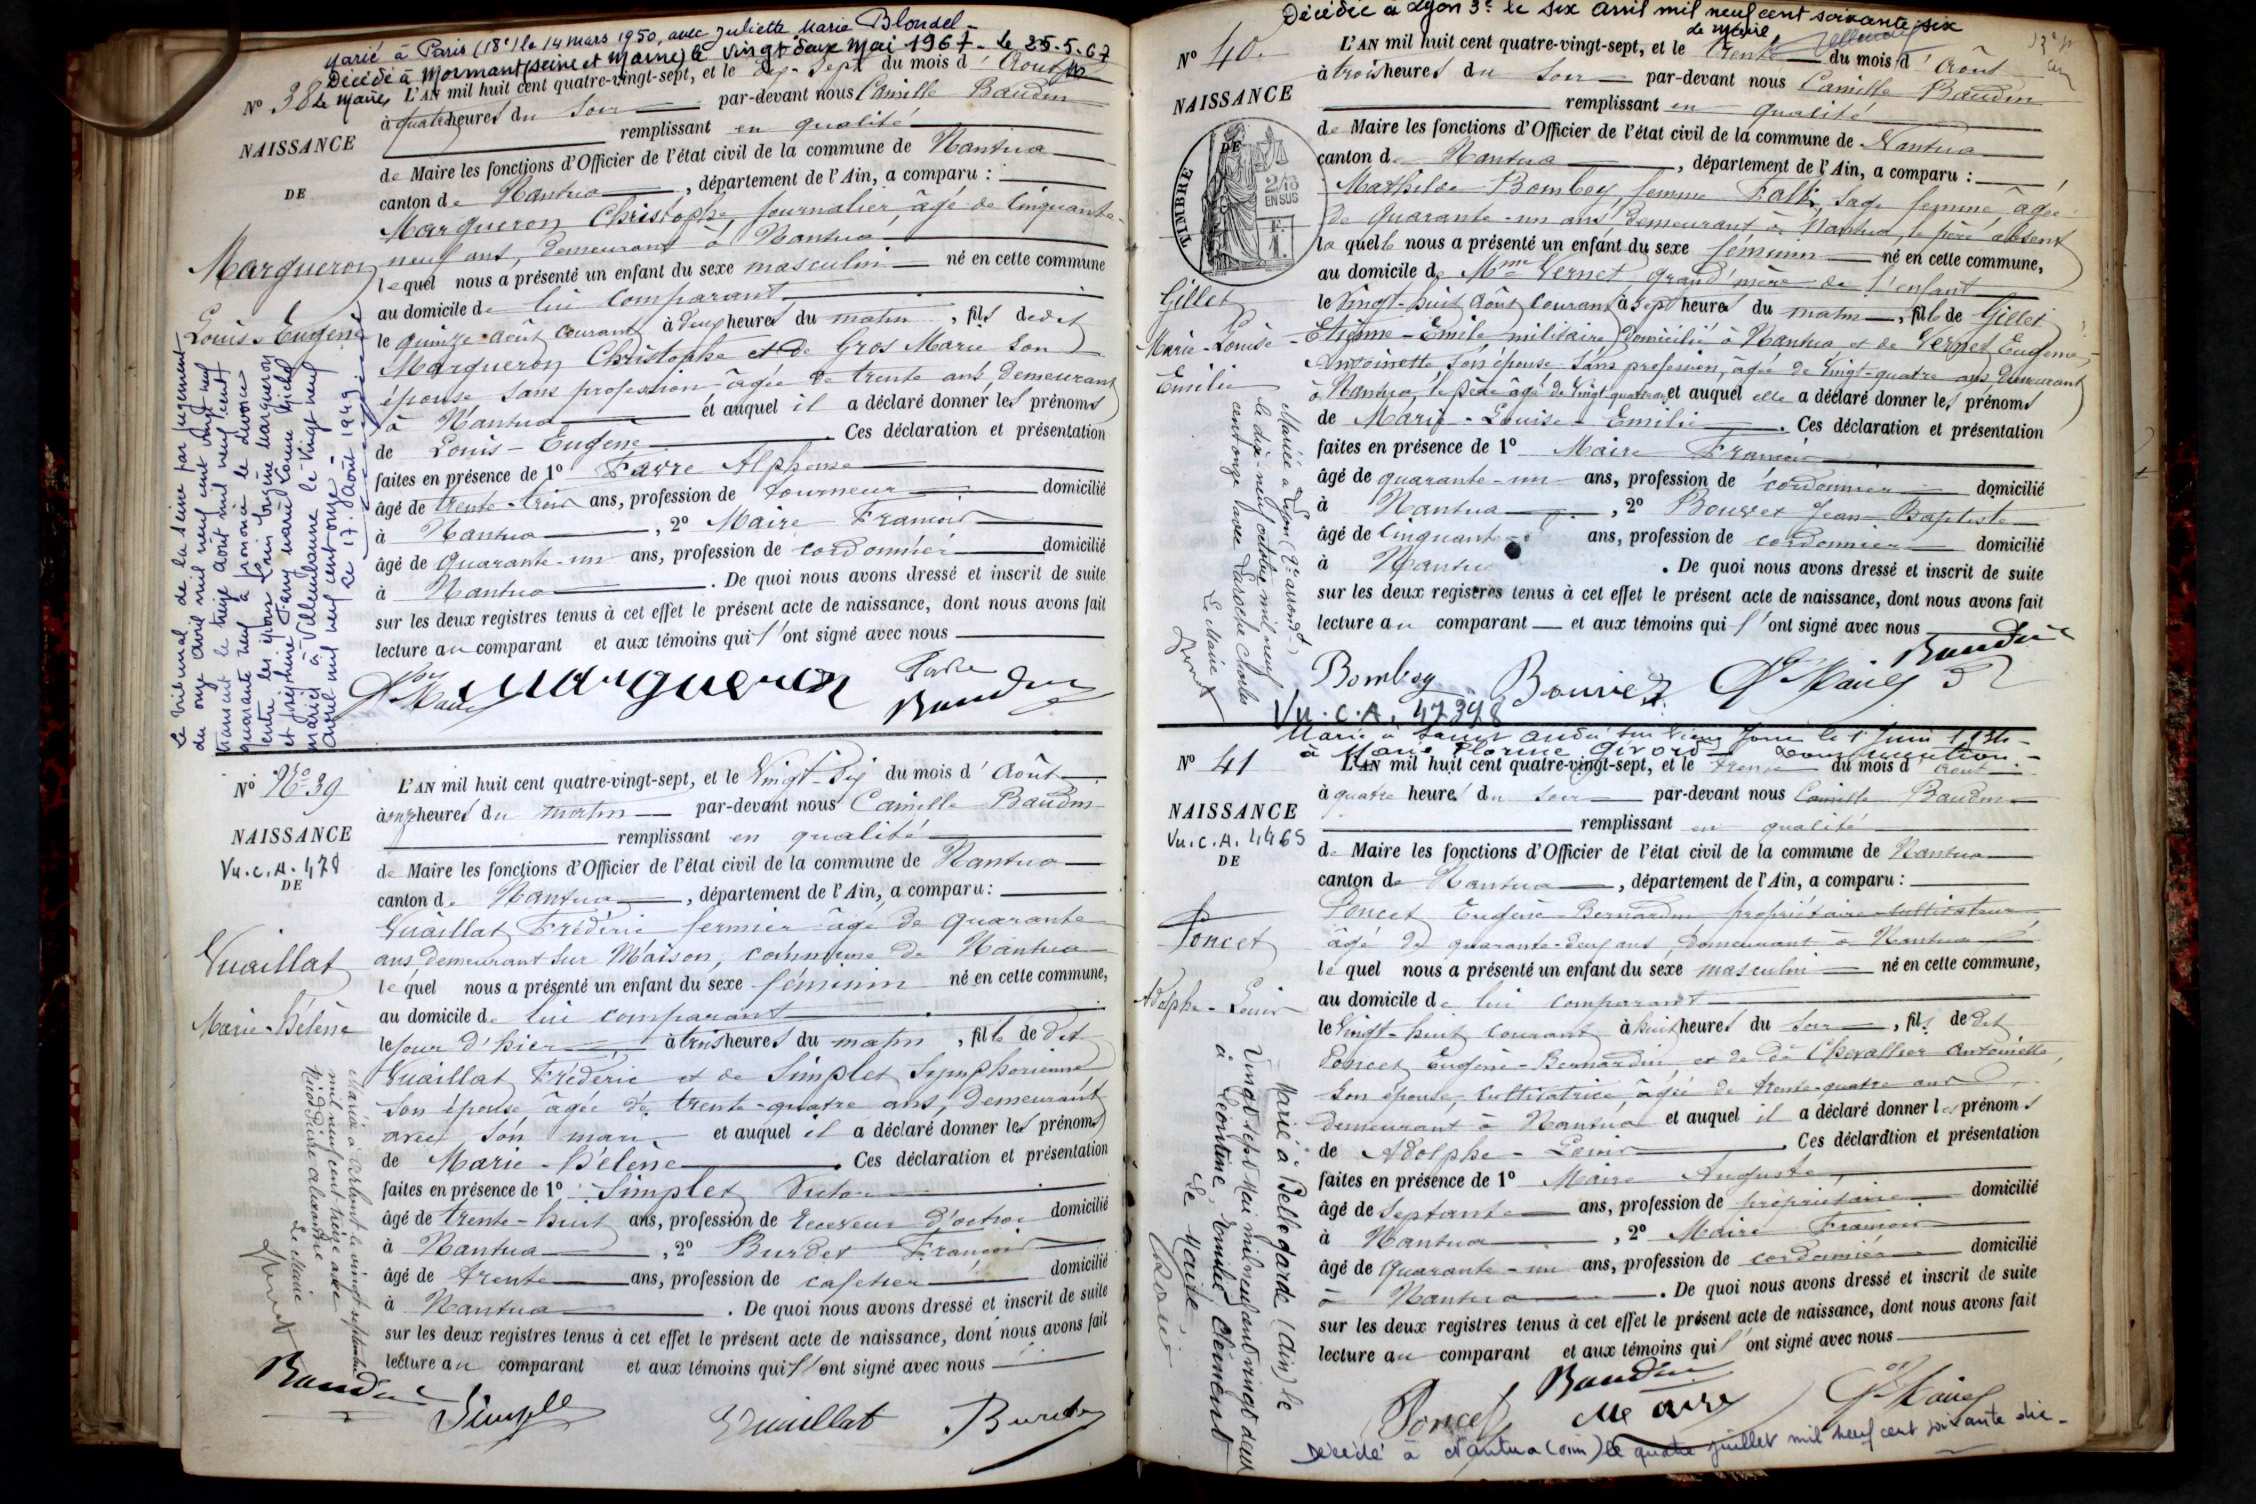 Marié à Paris (18e) le 14 mars 1950, avec Juliette Marie Blondel -
Décédé à Mormant (Seine et Marne) le vingt deux mai 1967 - Le 25-5-67
Le Maire
No 38
NAISSANCE
DE
Margueron
Louis-Eugène
L'AN mil huit cent quatre-vingt-sept, et le dix-sept du mois d'Août
à quatre heures du soir par-devant nous Camille Baudin
remplissant en qualité
de Maire les fonctions d'Officier de l'état civil de la commune de Nantua
canton de Nantua, département de l'Ain, a comparu :
Margueron Christophe, journalier, âgé de cinquante-
neuf ans, demeurant à Nantua
lequel nous a présenté un enfant du sexe masculin né en cette commune
au domicile de lui comparant
le quinze août courant à deux heures du matin, fils de dit
Margueron Christophe et de Gros Marie son
épouse sans profession âgée de trente ans, demeurant
à Nantua et auquel il a déclaré donner les prénoms
de Louis-Eugène. Ces déclaration et présentation
faites en présence de 1o Favre Alphonse
âgé de trente-trois ans, profession de tourneur domicilié
à Nantua, 2o Maire François
âgé de quarante-un ans, profession de cordonnier domicilié
à Nantua. De quoi nous avons dressé et inscrit de suite
sur les deux registres tenus à cet effet le présent acte de naissance, dont nous avons fait
lecture au comparant et aux témoins qui l'ont signé avec nous
Le tribunal de la Seine par jugement
du onze avril mil neuf cent vingt neuf
transcrit le treize août mil neuf cent
quarante neuf a prononcé le divorce
entre les époux Louis Eugène Margueron
et Joséphine Fanny Marie Louise Michel
mariés à Villeurbanne le vingt neuf
avril mil neuf cent onze -
Le 17 Août 1949
Fois Maire Margueron Favre
Baudin
No 39
NAISSANCE
Vu.C.A. 478
DE
Vuaillat
Marie-Hélène
L'AN mil huit cent quatre-vingt-sept, et le vingt-six du mois d'Août
à onze heures du matin par-devant nous Camille Baudin
remplissant en qualité
de Maire les fonctions d'Officier de l'état civil de la commune de Nantua
canton de Nantua, département de l'Ain, a comparu :
Vuaillat Frédéric fermier âgé de quarante
ans demeurant sur Maison, commune de Nantua
lequel nous a présenté un enfant du sexe féminin né en cette commune,
au domicile de lui comparant
le jour d'hier à trois heures du matin, fille de dit
Vuaillat Frédéric et de Simplet Symphorienne
son épouse, âgée de trente-quatre ans, demeurant
avec son mari et auquel il a déclaré donner les prénoms
de Marie-Hélène. Ces déclaration et présentation
faites en présence de 1o Simplet Victor
âgé de trente-huit ans, profession de Receveur d'octroi domicilié
à Nantua, 2o Burdet François
âgé de trente ans, profession de cafetier domicilié
à Nantua. De quoi nous avons dressé et inscrit de suite
sur les deux registres tenus à cet effet le présent acte de naissance, dont nous avons fait
lecture au comparant et aux témoins qui l'ont signé avec nous
Mariée à le vingt septembre
mil neuf cent treize avec
Pierre Alexandre
Le Maire
Baudin Simplet Vuaillat Burdet
Décédée à Lyon 3e le six avril mil neuf cent soixante-six
Le Maire
No 40
NAISSANCE
DE
TIMBRE
2/10
EN SUS
Gillet
Marie-Louise-
Emilie
L'AN mil huit cent quatre-vingt-sept, et le trente du mois d'Août
à trois heures du soir par-devant nous Camille Baudin
remplissant en qualité
de Maire les fonctions d'Officier de l'état civil de la commune de Nantua
canton de Nantua, département de l'Ain, a comparu :
Mathilde Bomboy, femme Falk, sage femme âgée
de quarante-un ans, demeurant à Nantua, le père absent
laquelle nous a présenté un enfant du sexe féminin né en cette commune,
au domicile de Mme Vernet grand'mère de l'enfant
le vingt-huit août courant à sept heures du matin, fille de Gillet
Etienne-Emile militaire domicilié à Nantua et de Vernet Eugénie-
Antoinette, son épouse sans profession, âgée de vingt-quatre ans demeurant
à Nantua, le père âgé de vingt quatre ans et auquel elle a déclaré donner les prénoms
de Marie-Louise-Emilie. Ces déclaration et présentation
faites en présence de 1o Maire François
âgé de quarante-un ans, profession de cordonnier domicilié
à Nantua, 2o Bouvet Jean-Baptiste
âgé de cinquante ans, profession de cordonnier domicilié
à Nantua. De quoi nous avons dressé et inscrit de suite
sur les deux registres tenus à cet effet le présent acte de naissance, dont nous avons fait
lecture au comparant et aux témoins qui l'ont signé avec nous
Mariée à Lyon (2e arrondt)
le dix-neuf octobre mil neuf
cent onze avec Laroche Charles
Le Maire
Bomboy Bouvet Fois Maire Baudin
Vu.C.A. 47398
Marié à Saint André sur Vieux Jonc le 1er Juin 1934 -
à Marie Florine Girord -
No 41
NAISSANCE
Vu.C.A. 4465
DE
Poncet
Adolphe-Louis
L'AN mil huit cent quatre-vingt-sept, et le trente du mois d'Août
à quatre heures du soir par-devant nous Camille Baudin
remplissant en qualité
de Maire les fonctions d'Officier de l'état civil de la commune de Nantua
canton de Nantua, département de l'Ain, a comparu :
Poncet Eugène-Bernardin propriétaire-cultivateur
âgé de quarante-deux ans, demeurant à Nantua
lequel nous a présenté un enfant du sexe masculin né en cette commune,
au domicile de lui comparant
le vingt-huit courant à huit heures du soir, fils de dit
Poncet Eugène-Bernardin et de dé Chevallier Antoinette,
son épouse, cultivatrice âgée de trente-quatre ans
demeurant à Nantua et auquel il a déclaré donner les prénoms
de Adolphe-Louis. Ces déclaration et présentation
faites en présence de 1o Maire Auguste,
âgé de septante ans, profession de propriétaire domicilié
à Nantua, 2o Maire François
âgé de quarante-un ans, profession de cordonnier domicilié
à Nantua. De quoi nous avons dressé et inscrit de suite
sur les deux registres tenus à cet effet le présent acte de naissance, dont nous avons fait
lecture au comparant et aux témoins qui l'ont signé avec nous
Marié à Bellegarde (Ain) le
vingt sept Mai mil neuf cent vingt deux
à Léontine, Emilie Clément
Le Maire
Poncet Baudin Maire Fois Maire
Décédé à Nantua (Ain) le quatre juillet mil neuf cent soixante dix -